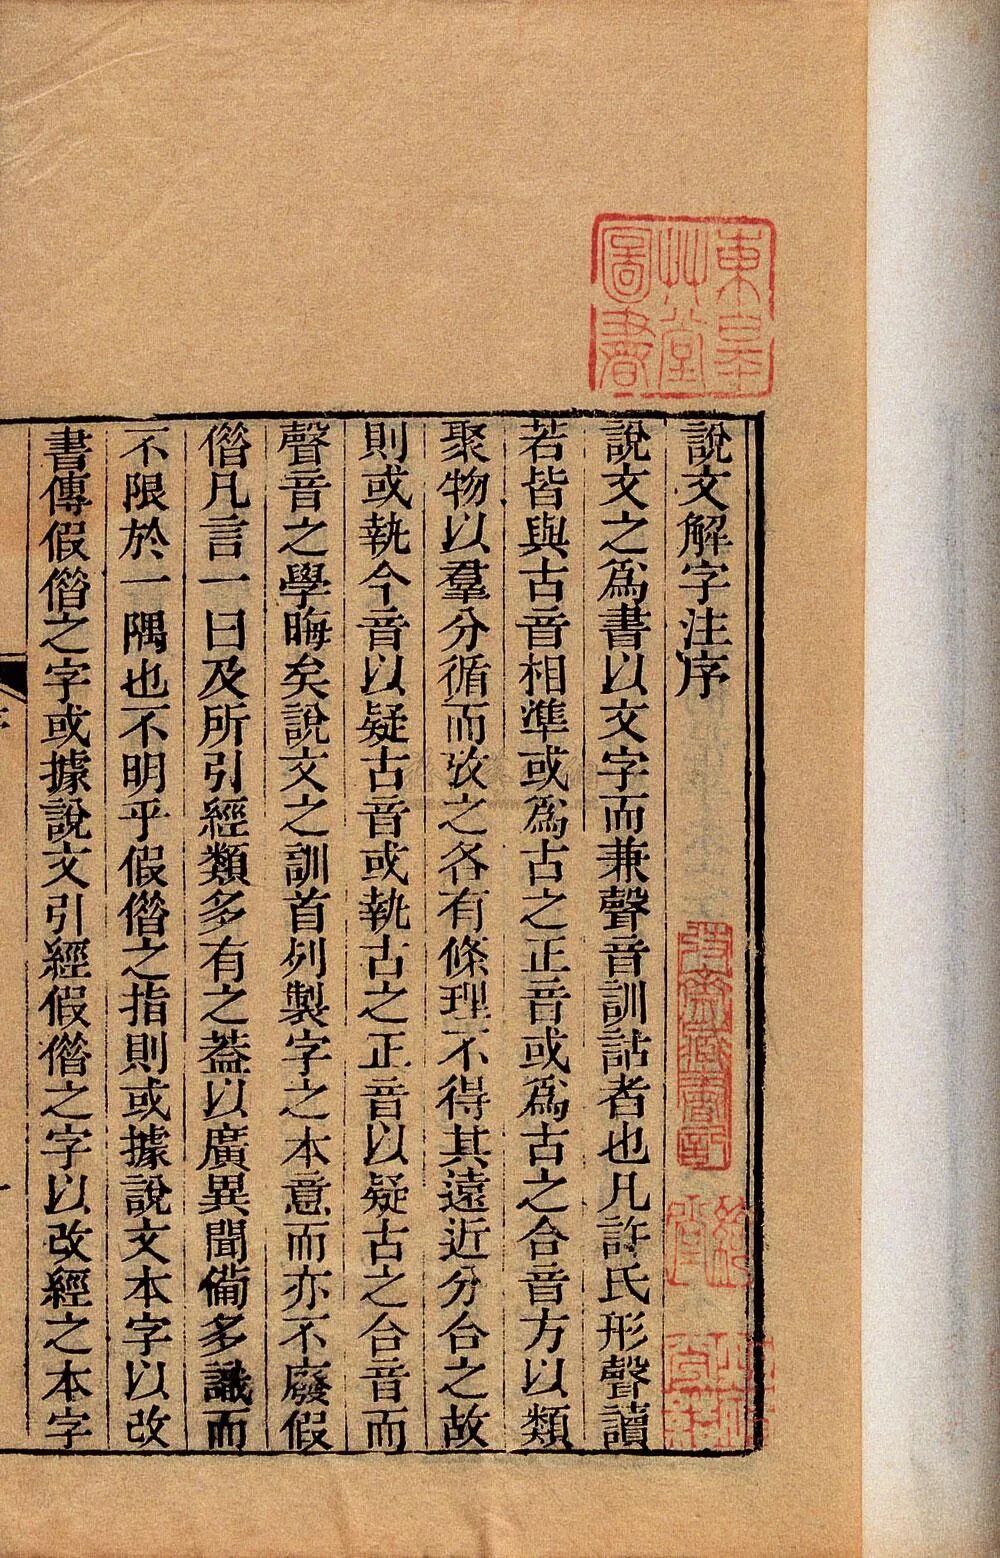 說文解字注序
說文之爲書以文字而兼聲音訓詁者也凡許氏形聲讀
若皆與古音相準或爲古之正音或爲古之合音方以類
聚物以羣分循而攷之各有條理不得其遠近分合之故
則或執今音以疑古音或執古之正音以疑古之合音而
聲音之學晦矣說文之訓首列製字之本意而亦不廢假
偺凡言一曰及所引經類多有之葢以廣異聞僃多識而
不限於一隅也不明乎假偺之指則或據說文本字以改
書傳假偺之字或據說文引經假偺之字以改經之本字
東皋
艸堂
圖書